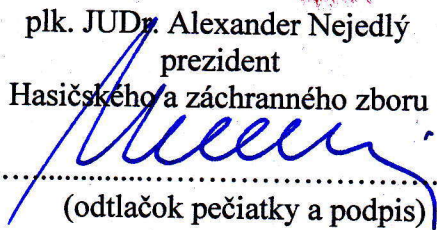 plk. JUDr. Alexander Nejedlý
prezident
Hasičského a záchranného zboru
(odtlačok pečiatky a podpis)